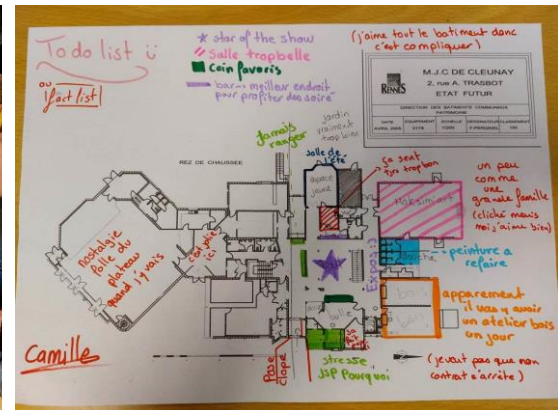 To do list ü
ou
1 fact list
★ star of the show
Salle trop belle
Coin favoris
bar → meilleur endroit
pour profiter des soiré
(j'aime tout le batiment donc
c'est compliquer)
M.J.C DE CLEUNAY
2, rue A. TRASBOT
ETAT FUTUR
RENNES
DIRECTION DES BATIMENTS COMMUNAUX
PATRIMOINE
DATE
EQUIPEMENT
ECHELLE
DESSINATEUR
CLASSEMENT
REZ DE CHAUSSEE
Jamais
ranger
jardin
vraiment
trop bien
salle de
l'été
espace
jeune
ça sent
tjrs trop bon
Maksimiart
un peu
comme
une
grande famille
(cliché mais
moi j'aime bien)
Nostalgie
Folle du
plateau
quand j'y vais
ici
Expos
peinture a
refaire
bulle
bois
apparement
il vas y avoir
un atelier bois
un jour
Camille
Pose
clope
stresse
JSP Pourquoi
(je veut pas que mon
contrat s'arrète)